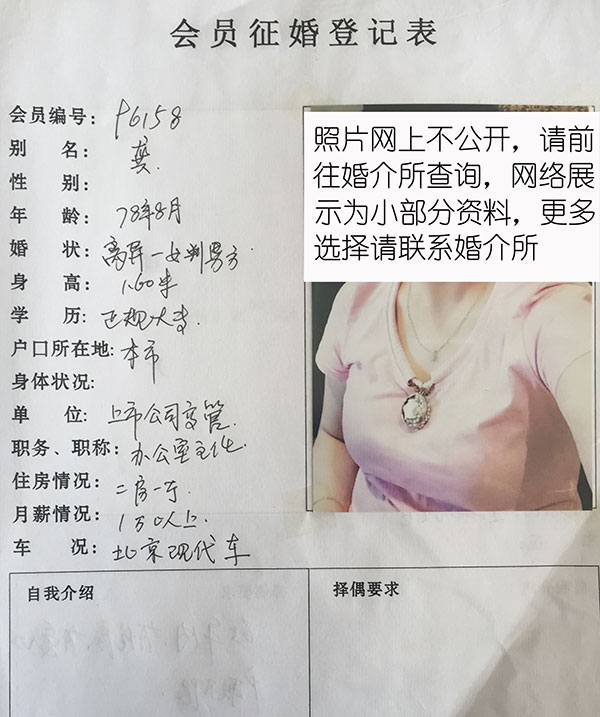 会员征婚登记表
会员编号: 96158
别 名: 龚
性 别:
年 龄: 78年8月
婚 状: 离异一女判男方
身 高: 1.60米
学 历: 正规大专
户口所在地: 本市
身体状况:
单 位: 上市公司高管
职务、职称: 办公室主任
住房情况: 二房一厅
月薪情况: 1万以上.
车 况: 北京现代车
照片网上不公开，请前
往婚介所查询，网络展
示为小部分资料，更多
选择请联系婚介所
自我介绍
择偶要求